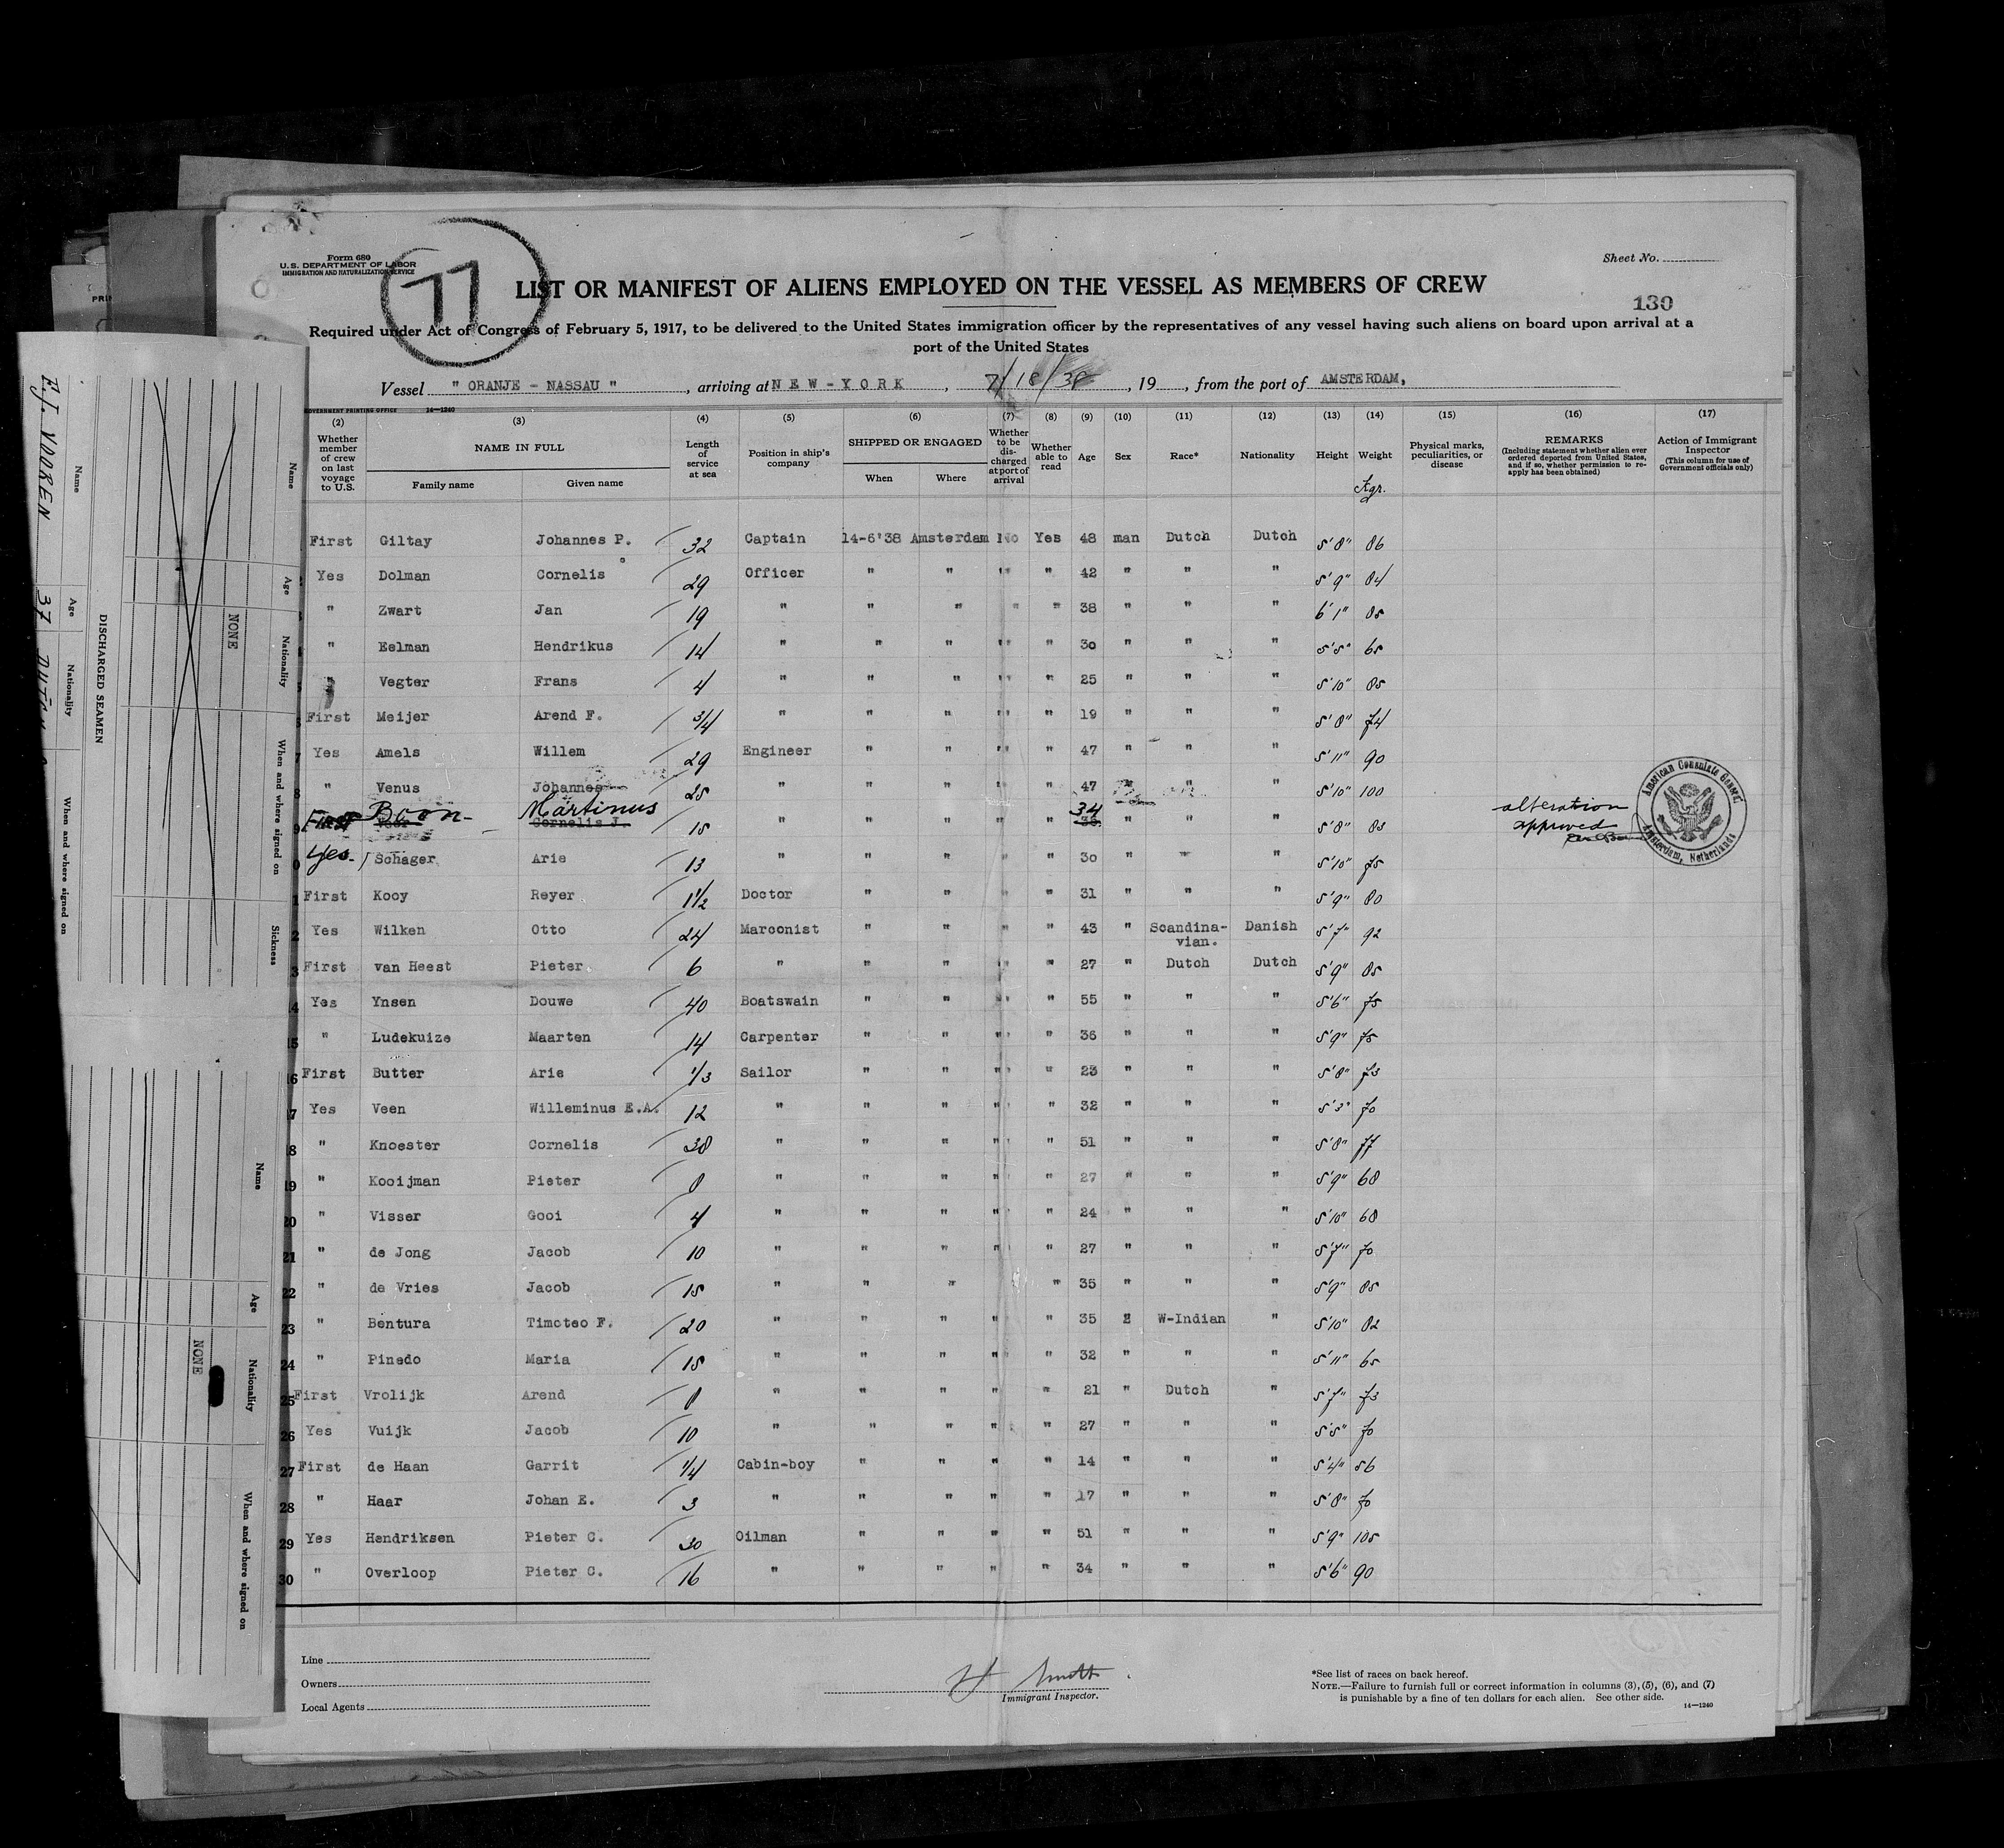 Form 680
U.S. DEPARTMENT OF LABOR
IMMIGRATION AND NATURALIZATION SERVICE
77
Sheet No.
LIST OR MANIFEST OF ALIENS EMPLOYED ON THE VESSEL AS MEMBERS OF CREW
130
Required under Act of Congress of February 5, 1917, to be delivered to the United States immigration officer by the representatives of any vessel having such aliens on board upon arrival at a
port of the United States
Vessel " ORANJE - NASSAU " , arriving at NEW-YORK , 7/18/38 , 19 , from the port of AMSTERDAM,
GOVERNMENT PRINTING OFFICE 14—1240
(2) (3) (4) (5) (6) (7) (8) (9) (10) (11) (12) (13) (14) (15) (16) (17)
Whether member of crew on last voyage to U.S.
NAME IN FULL
Family name Given name
Length of service at sea
Position in ship's company
SHIPPED OR ENGAGED
When Where
Whether to be discharged at port of arrival
Whether able to read
Age
Sex
Race*
Nationality
Height
Weight
Kgr.
Physical marks, peculiarities, or disease
REMARKS
(Including statement whether alien ever ordered deported from United States, and if so, whether permission to reapply has been obtained)
Action of Immigrant Inspector
(This column for use of Government officials only)
First Giltay Johannes P. 32 Captain 14-6'38 Amsterdam No Yes 48 man Dutch Dutch 5'8" 86
Yes Dolman Cornelis 29 Officer " " " " 42 " " " 5'9" 84
" Zwart Jan 19 " " " " " 38 " " " 6'1" 85
" Eelman Hendrikus 14 " " " " " 30 " " " 5'5" 65
" Vegter Frans 4 " " " " " 25 " " " 5'10" 85
First Meijer Arend F. 3/4 " " " " " 19 " " " 5'8" 74
7 Yes Amels Willem 29 Engineer " " " " 47 " " " 5'11" 90
8 " Venus Johannes 25 " " " " " 47 " " 5'10" 100
9 First Boon Martinus Cornelis J. 15 " " " " " 34 " " " 5'8" 83 alteration approved
American Consulate General Amsterdam, Netherlands
0 Yes Schager Arie 13 " " " " " 30 " " " 5'10" 75
1 First Kooy Reyer 1 1/2 Doctor " " " " 31 " " " 5'9" 80
2 Yes Wilken Otto 24 Marconist " " " " 43 " Scandina-vian. Danish 5'7" 92
3 First van Heest Pieter 6 " " " " " 27 " Dutch Dutch 5'9" 85
4 Yes Ynsen Douwe 40 Boatswain " " " " 55 " " " 5'6" 75
15 " Ludekuize Maarten 14 Carpenter " " " " 36 " " " 5'9" 75
16 First Butter Arie 1/3 Sailor " " " " 23 " " " 5'8" 73
7 Yes Veen Willeminus E.A. 12 " " " " " 32 " " " 5'3" 70
8 " Knoester Cornelis 38 " " " " " 51 " " " 5'8" 77
19 " Kooijman Pieter 8 " " " " " 27 " " " 5'9" 68
20 " Visser Gooi 4 " " " " " 24 " " " 5'10" 68
21 " de Jong Jacob 10 " " " " " 27 " " " 5'7" 70
22 " de Vries Jacob 15 " " " " 35 " " " 5'9" 85
23 " Bentura Timoteo F. 20 " " " " " 35 " W-Indian " 5'10" 82
24 " Pinedo Maria 15 " " " " " 32 " " " 5'11" 65
25 First Vrolijk Arend 8 " " " " " 21 " Dutch " 5'7" 73
26 Yes Vuijk Jacob 10 " " " " " 27 " " " 5'5" 70
27 First de Haan Garrit 1/4 Cabin-boy " " " " 14 " " " 5'4" 56
28 " Haar Johan E. 3 " " " " " 17 " " " 5'8" 70
29 Yes Hendriksen Pieter C. 30 Oilman " " " " 51 " " " 5'9" 105
30 " Overloop Pieter C. 16 " " " " " 34 " " " 5'6" 90
Line
Owners
Local Agents
Immigrant Inspector.
*See list of races on back hereof.
NOTE.—Failure to furnish full or correct information in columns (3), (5), (6), and (7)
is punishable by a fine of ten dollars for each alien. See other side.
14—1240
Name Age Nationality When and where signed on
E.J. VOOREN 37
DISCHARGED SEAMEN
Name Age Nationality When and where signed on Sickness
NONE
Name Age Nationality When and where signed on
NONE